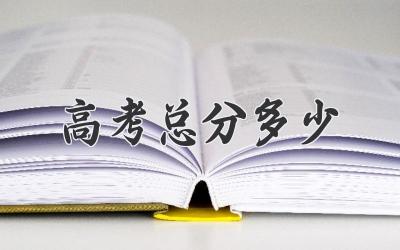 高考总分多少